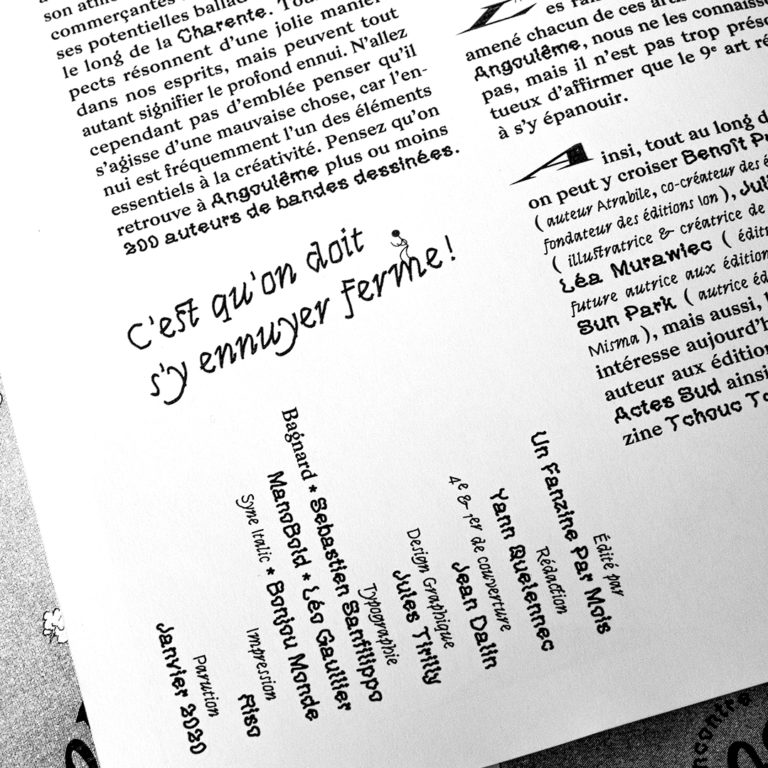 son
commerçantes
ses potentielles
le long de la Charente.
pects résonnent d'une jolie
dans nos esprits, mais peuvent tout
autant signifier le profond ennui. N'allez
cependant pas d'emblée penser qu'il
s'agisse d'une mauvaise chose, car l'en-
nui est fréquemment l'un des éléments
essentiels à la créativité. Pensez qu'on
retrouve à Angoulême plus ou moins
200 auteurs de bandes dessinées.
C'est qu'on doit
s'y ennuyer ferme !
es
amené chacun de ces
Angoulême, nous ne les
pas, mais il n'est pas trop
tueux d'affirmer que le 9e art
à s'y épanouir.
Ainsi, tout au long
on peut y croiser Benoît
( auteur Atrabile, co-créateur des
fondateur des éditions Ion ),
( illustratrice & créatrice de
Léa Murawiec (
future autrice aux
Sun Park ( autrice
Misma ), mais aussi,
intéresse
auteur aux
Actes Sud
zine Tchouc
Édité par
Un Fanzine Par Mois
Rédaction
Yann Quelennec
4e & 1er de couverture
Jean Dalin
Design Graphique
Jules Tirilly
Typographie
Sebastien Sanfilippo
Bagnard * Léo Gaullier
ManoBold * Bonjou Monde
Syne Italic *
Impression
Riso
Parution
Janvier 2020
ncontre